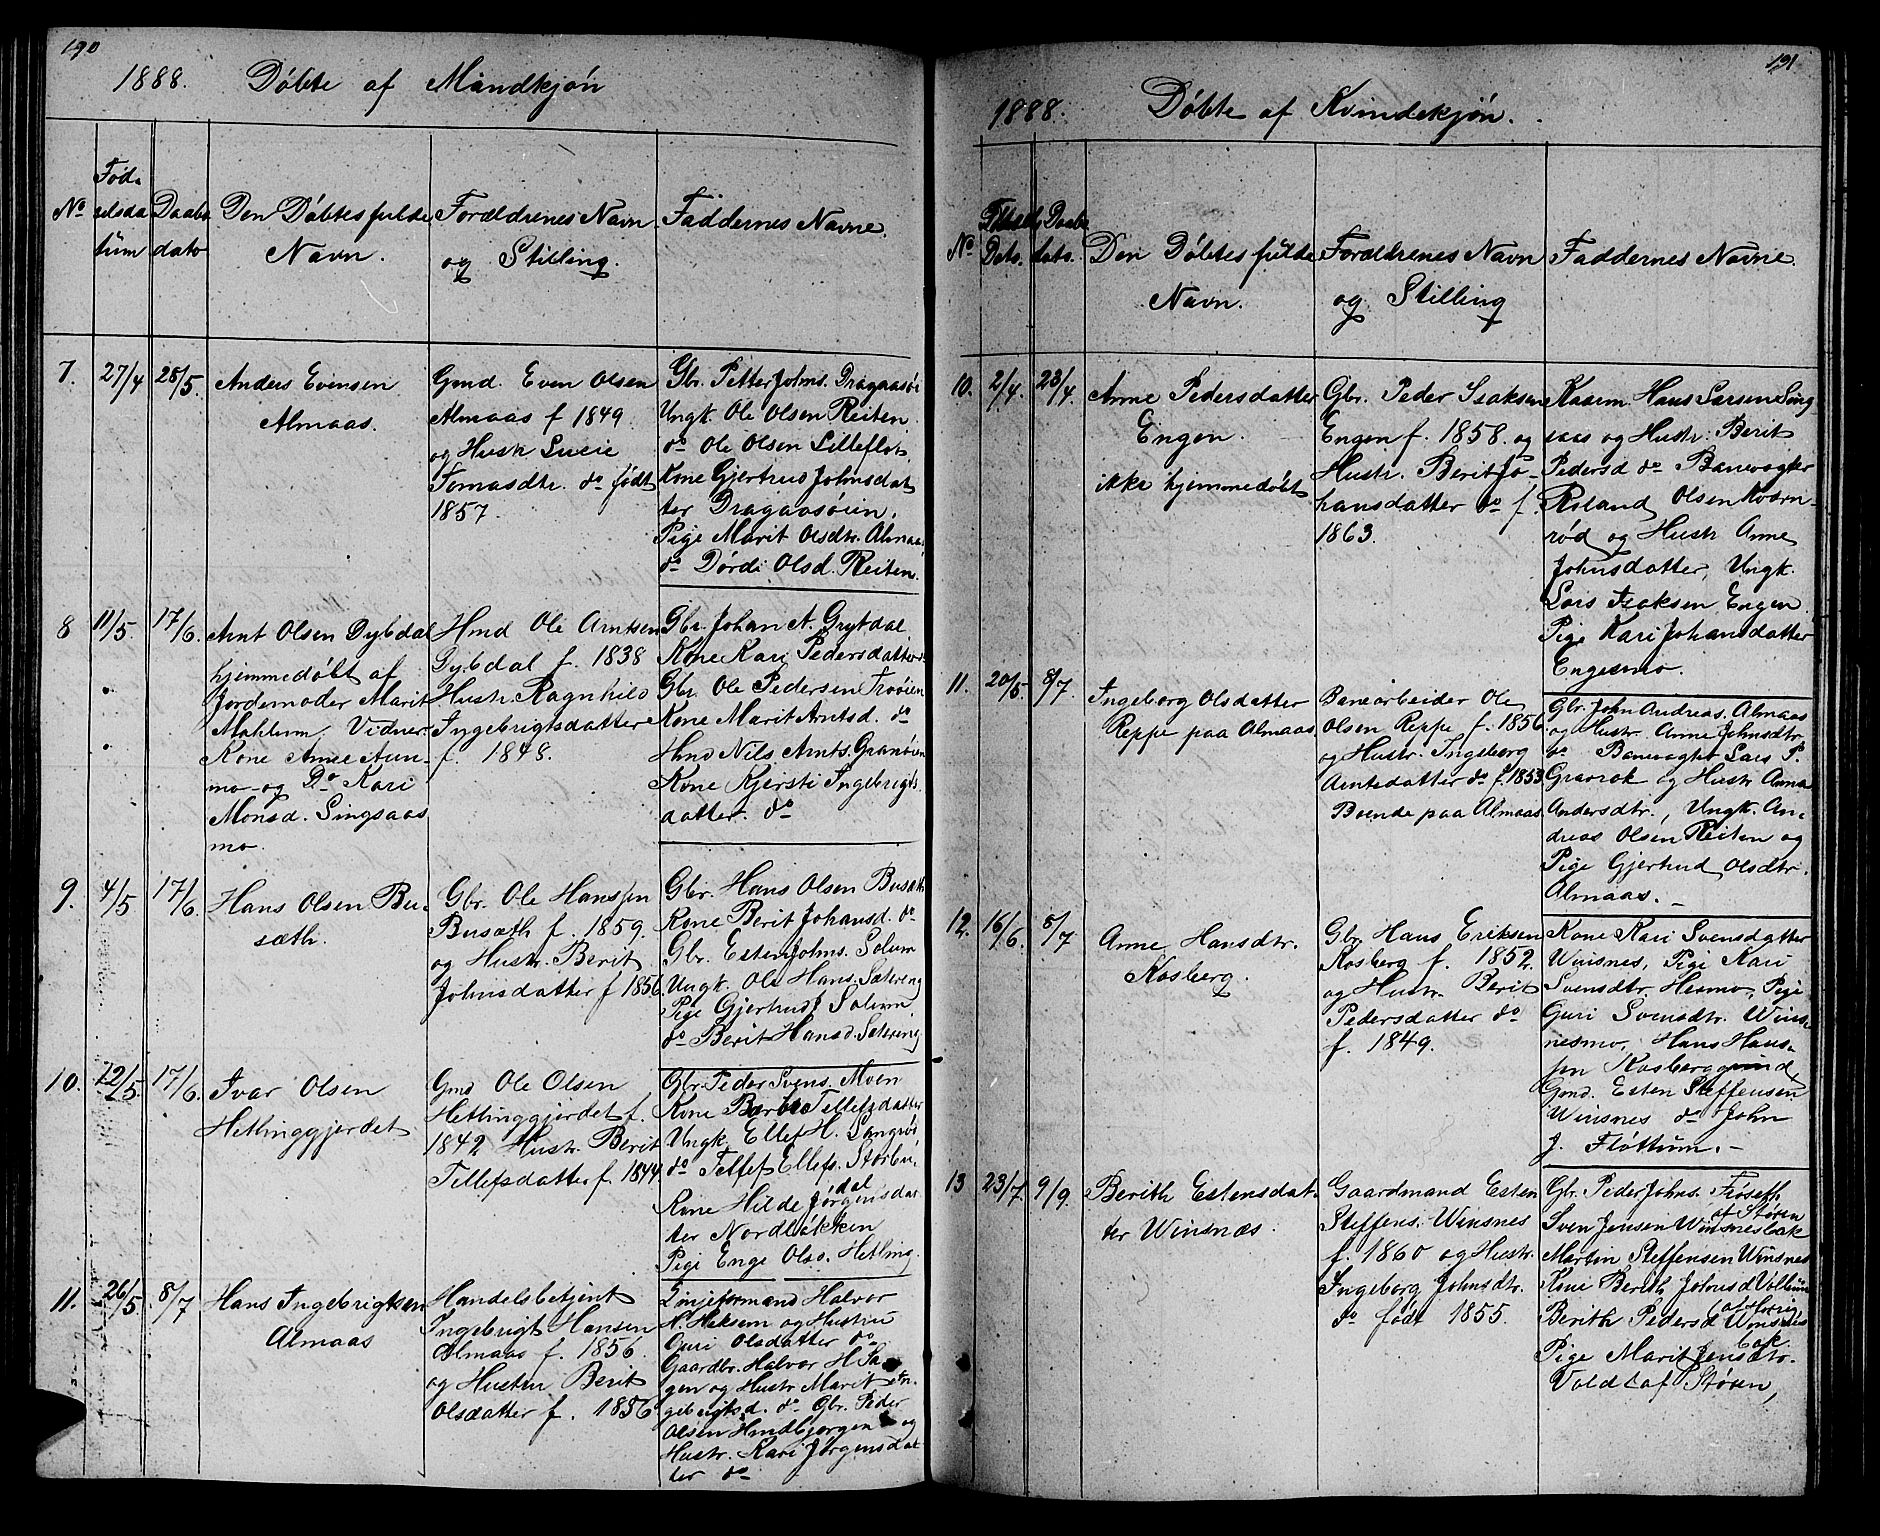 190
1888. Döbte af Mandkjön
No
Föd-
selsda
tum
Daabs
dato
Den Döbtes fulde
Navn.
Forældrenes Navn
og Stilling.
Faddernes Navne
7. 27/4 28/5.
Anders Evensen
Almaas.
Gmd. Even Olsen
Almaas f 1849.
og Hustr Lucie
Tomasdtr. do födt
1857.
Gbr. Petter Johns. Dragaasöi
Ungk. Ole Olsen Reiten.
do Ole Olsen Lilleflot
Kone Gjertrud Johnsdat
ter Dragaasöien.
Pige Marit Olsdtr. Almaas
do Dördi Olsd. Reiten.
8 11/5. 17/6.
Arnt Olsen Dybdal
hjemmedöbt af
Jordemoder Marit
Mahlum, Vidner
Kone Anne Aun-
mo og Do Kari
Monsd. Singsaas
mo.
Hmd Ole Arntsen
Dybdal f. 1838
Hustr. Ragnhild
Ingebrigtsdatter
f. 1848.
Gbr. Johan A. Grytdal
Kone Kari Pedersdatter
Gbr. Ole Pedersen Troöien
Kone Marit Arntsd. do
Hmd Nils Arnts. Granöien
Kone Kjersti Ingebrigts
datter. do
9. 4/5 17/6.
Hans Olsen Bu-
sæth.
Gbr. Ole Hanssen
Busæth f. 1859.
og Hustr. Berit
Johnsdatter f 1856.
Gbr. Hans Olsen Busæth
Kone Berit Johansd. do
Gbr. Esten Johns. Solum
Ungk. Ole Hans. Sætereng
Pige Gjertrud J Solum
do Berit Hansd. Sætereng
10. 12/5. 17/6.
Ivar Olsen
Hettinggjerdet
Gmd Ole Olsen
Hettinggjerdet f.
1842 Hustr. Berit
Tellefsdatter f. 1844.
Gbr. Peder Svens. Moen
Kone Barbro Tellefsdatter
Ungk. Ellef H. Langröi
do Tellef Ellefs. Storbu-
dal
Kone Hilde Jörgensdat
ter Nordlökken
Pige Enge Olsd. Hetting.
11. 26/5 8/7
Hans Ingebrigtsen
Almaas
Handelsbetjent
Ingebrigt Hansen
Almaas f. 1856.
og Hustru Berit
Olsdatter f. 1856
Linjeformand Halvor
H. Haksem og Hustru
Guri Olsdatter do
Gaardbr. Halvor H Sa
gen og Hustr Marit In-
gebrigtsd. do Gbr. Peder
Olsen Hindbjorgen og
Hustr. Kari Jörgensdat
ter do
191
1888. Döbte af Kvindekjön.
No
Dato.
Daabs
dato.
Den Döbtes fulde
Navn.
Forældrenes Navn
og Stilling
Faddernes Navne.
10. 2/4. 23/4.
Anne Pedersdatter
Engen.
ikke hjemmedöbt
Gbr. Peder Isaksen
Engen f. 1858. og
Hustr. Berit Jo-
hansdatter do f.
1863.
Kaarm. Hans Larsen Sing
saas og Hustr. Berit
Pedersd do Banevogter
Roland Olsen Kværn-
röd og Hustr Anne
Johnsdatter, Ungk.
Lars Isaksen Engen
Pige Kari Johansdatter
Engesmo.
11. 20/5 8/7.
Ingeborg Olsdatter
Reppe paa Almaas
Banearbeider Ole
Olsen Reppe f. 1856
og Hustr. Ingeborg
Arntsdatter do f. 1853
Boende paa Almaas.
Gbr. John Andreas. Almaas
og Hustr. Anne Johnsdtr
do Banevogter Lars P.
Graorok og Hustr Anna
Andersdtr., Ungk. An-
dreas Olsen Reiten og
Pige Gjertrud Olsdtr.
Almaas.-
12. 16/6. 8/7
Anne Hansdtr.
Kosberg.
Gbr. Hans Eriksen
Kosberg f. 1852.
og Hustr. Berit
Pedersdatter do
f. 1849.
Kone Kari Svensdatter
Winsnes, Pige Kari
Svensdtr Hesmo, Pige
Guri Svensdtr. Wins-
nesmo, Hans Hans-
sen Kosberggrind,
Gmd. Esten Steffensen
Winsnes do John
J. Flöttum.-
13 23/7. 9/9.
Berith Estensdat-
ter Winsnæs.
Gaardmand Esten
Steffens. Winsnes
f. 1860 og Hustr.
Ingeborg Johnsdtr.
do født 1855.
Gbr. Peder Johns. Fröseth
af Stören
Sven Jensen Winsnesbak
Martin Steffensen Winsnes
Kone Berith Johnsd Volhun
Berith Pedersd Winsnes
bak
Pige Marit Jensdtr.
Vold af Stören,